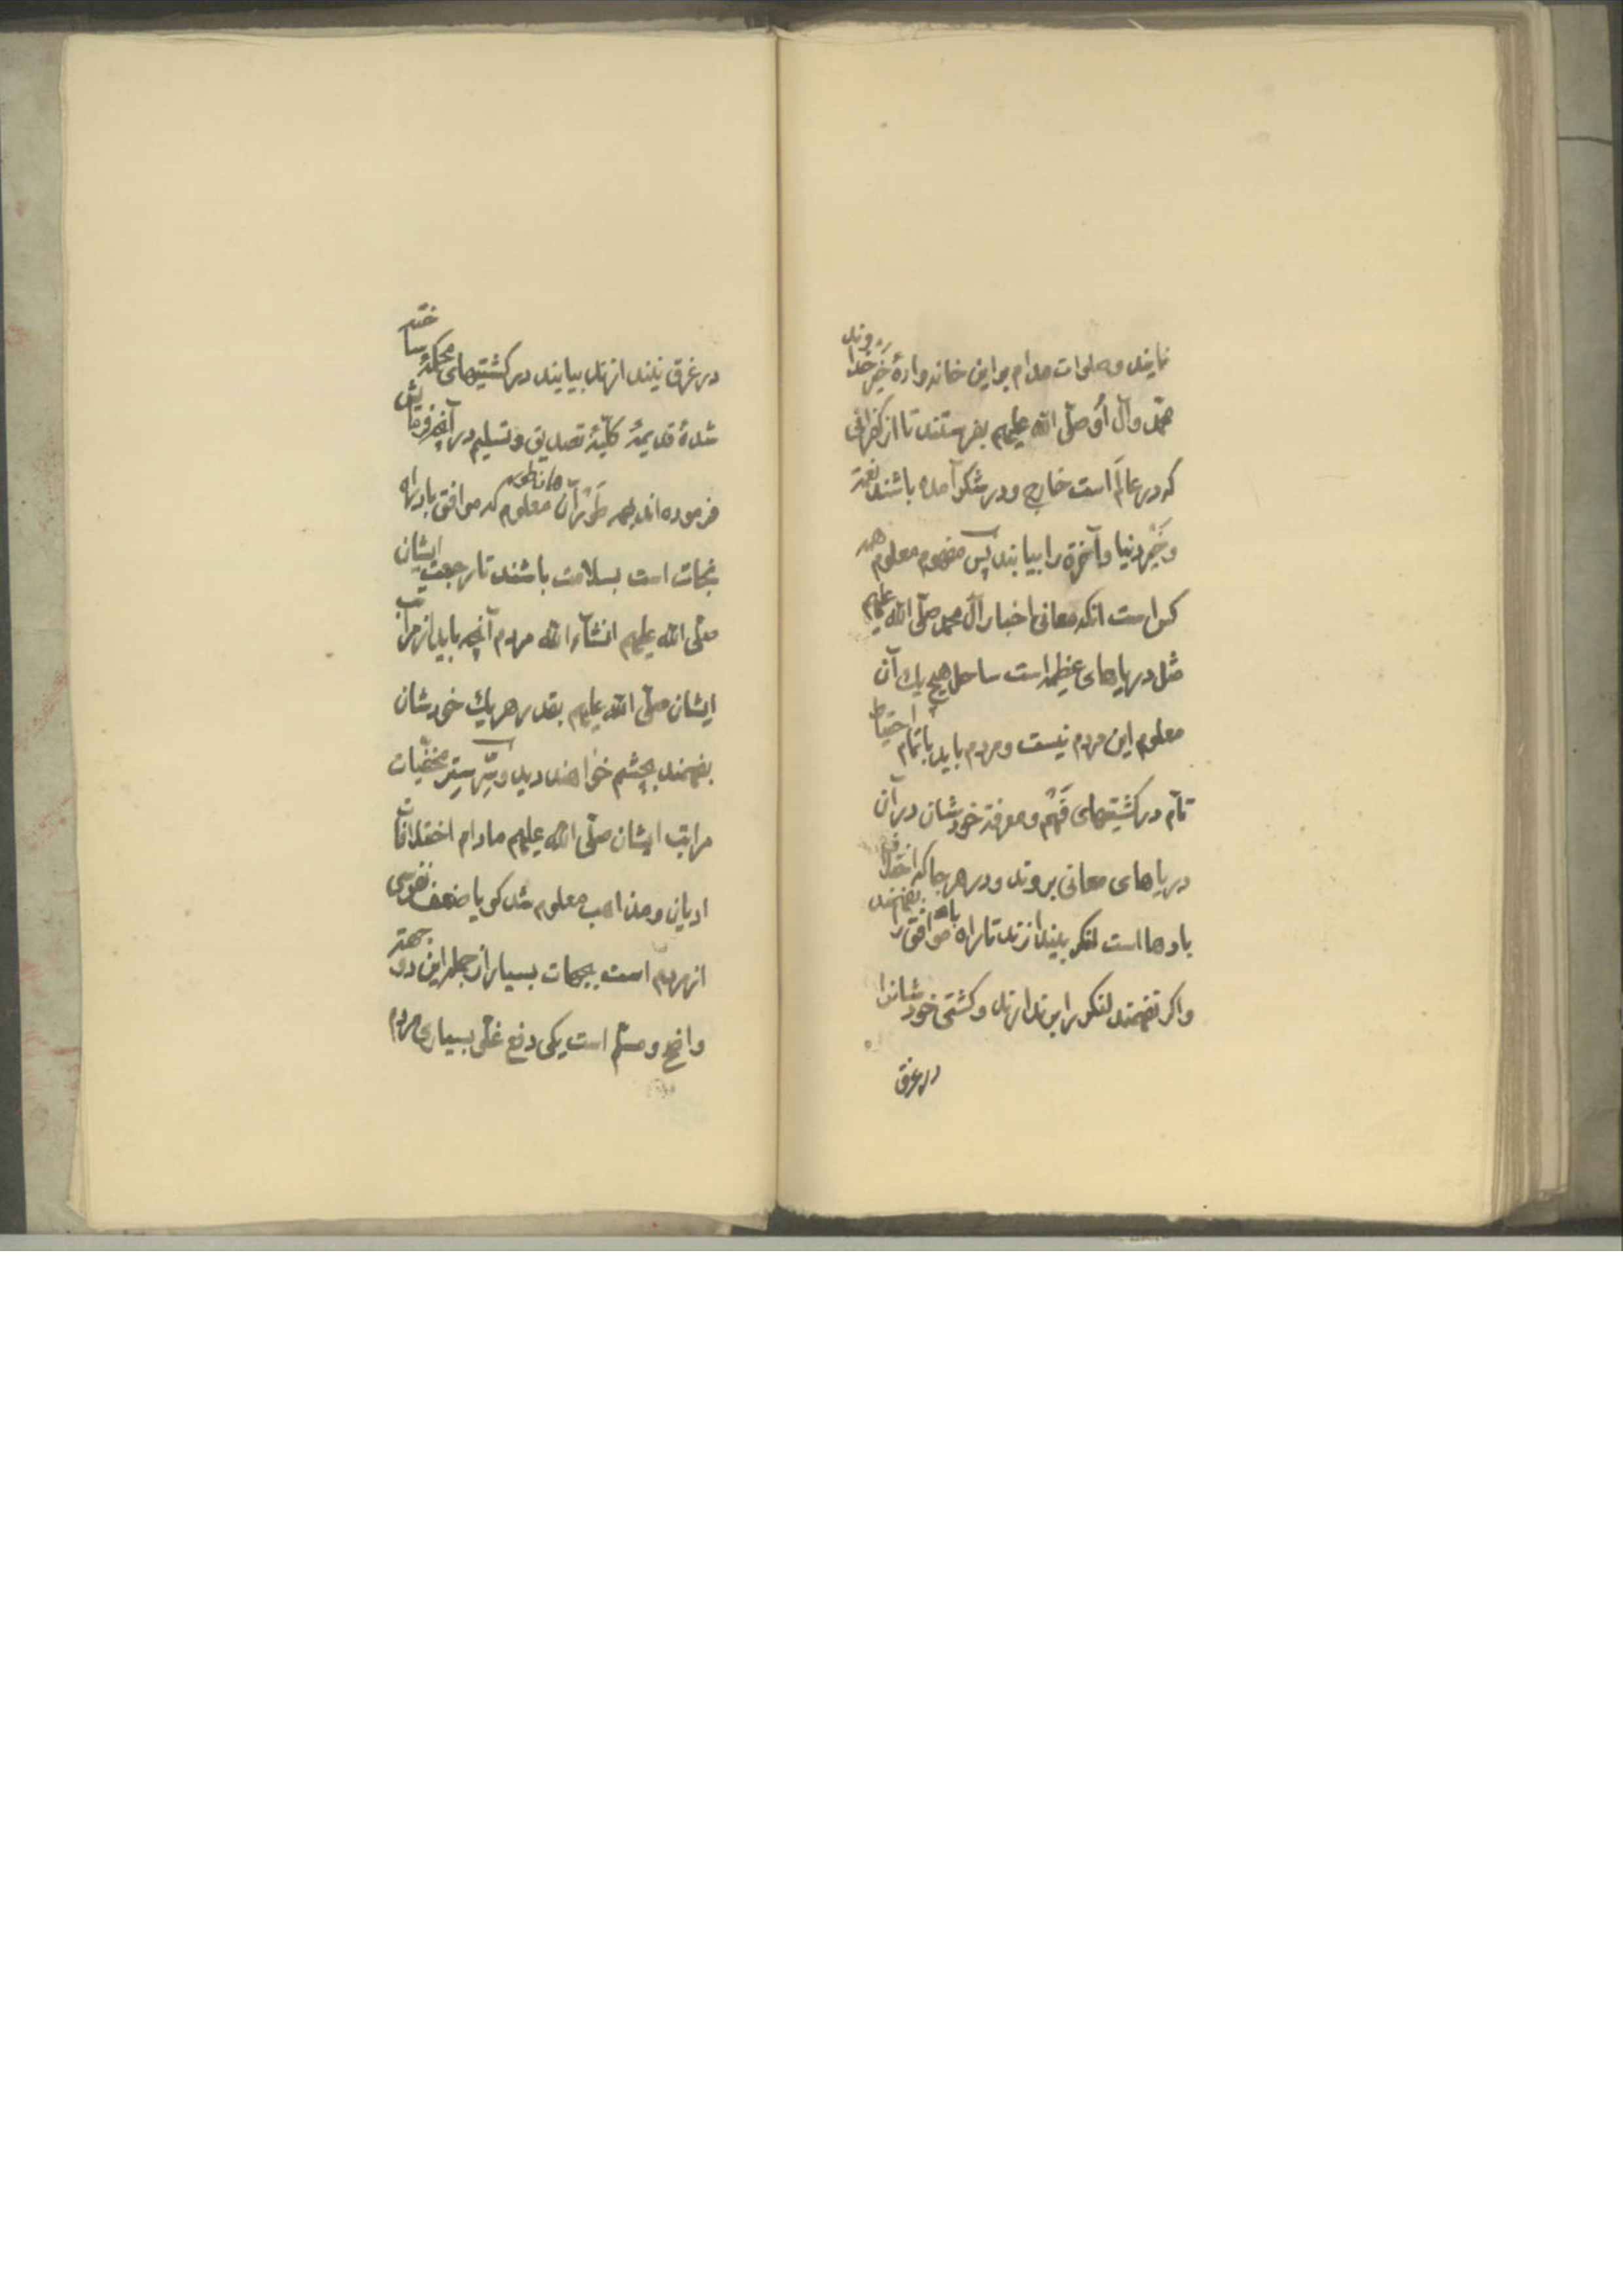 نمایند و صلوات مدام بر این خانه‌وادهٔ خیر خداوند
محمّد وآل أو صلّی الله علیهم بفرستند تا از کفرانی
که در عالم است خارج و در شکر آمده باشند نعمة
وخیر دنیا وآخرة را بیابند پس مفهوم معلوم همه
کس است انکه معانی اخبار آل محمد صلّی الله علیهم
مثل دریاهای عظیمه است ساحل هیچ یك آن
معلوم این مردم نیست و مردم باید با تمام احتیاط
تامّ در کشتیهای فهم و معرفة خودشان در آن
دریاهای معانی بروند ودر هر جا که اختلاف
بادها است لنگر بیندازند تا راه موافق را بفهمند
واکر نفهمند لنگر را بر ندارند وکشتی خودشانرا
در غرق
در غرق نیندازند بیایند در کشتیهای محکمهٔ ساخته
شدهٔ قدیمهٔ کلّیهٔ تصدیق و تسلیم در آنچه فرمایش
فرموده‌اند بهر طور آن معلوم که موافق باد راه
نجات است بسلامت باشند تا رجعت ایشان
صلّی الله علیهم انشآء الله مردم آنچه باید از مراتب
ایشان صلّی الله علیهم بقدر هر یك خودشان
بفهمند بچشم خواهند دید وسرّ ستر مخفیّات
مراتب ایشان صلّی الله علیهم مادام اختلافات
ادیان ومذاهب معلوم شد کویا ضعف نفوسی
از مردم است بجهات بسیار از جمله این دو جهة
واضح و مسلّم است یکی دفع غلّی بسیاری مردم